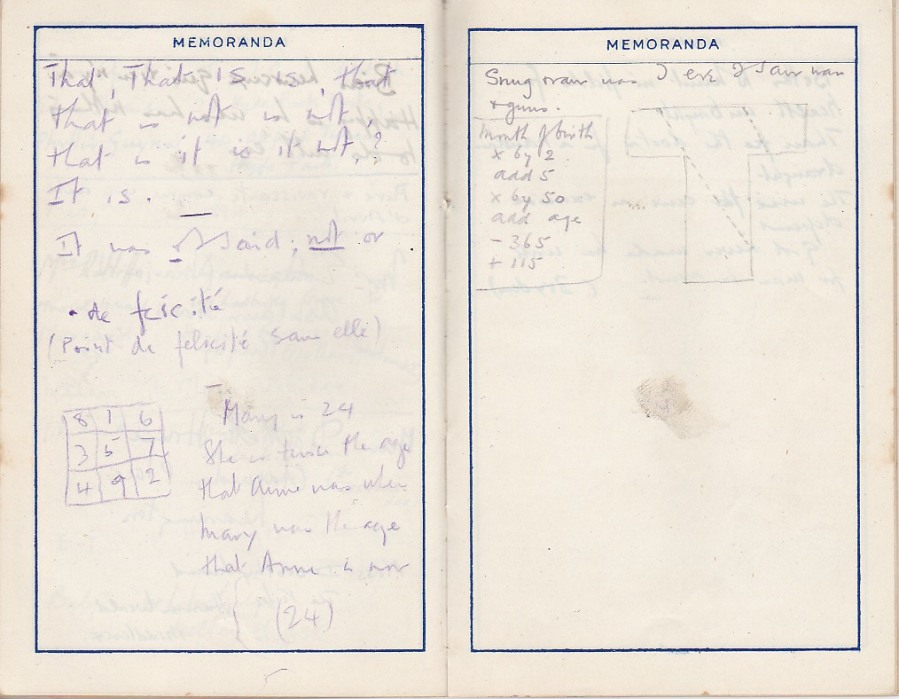 MEMORANDA
That, That is is, that
that is not is not,
that is it is it not,?
It is.
It was said; not or
. de félicité
(Point de félicité sans elle)
8 1 6
3 5 7
4 9 2
Mary is 24
She is twice the age
that Anne was when
Mary was the age
that Anne is now
(24)
MEMORANDA
Snug was I ere I saw
& guns.
Month of birth
x by 2
add 5
x by 50
add age
- 365
+ 115